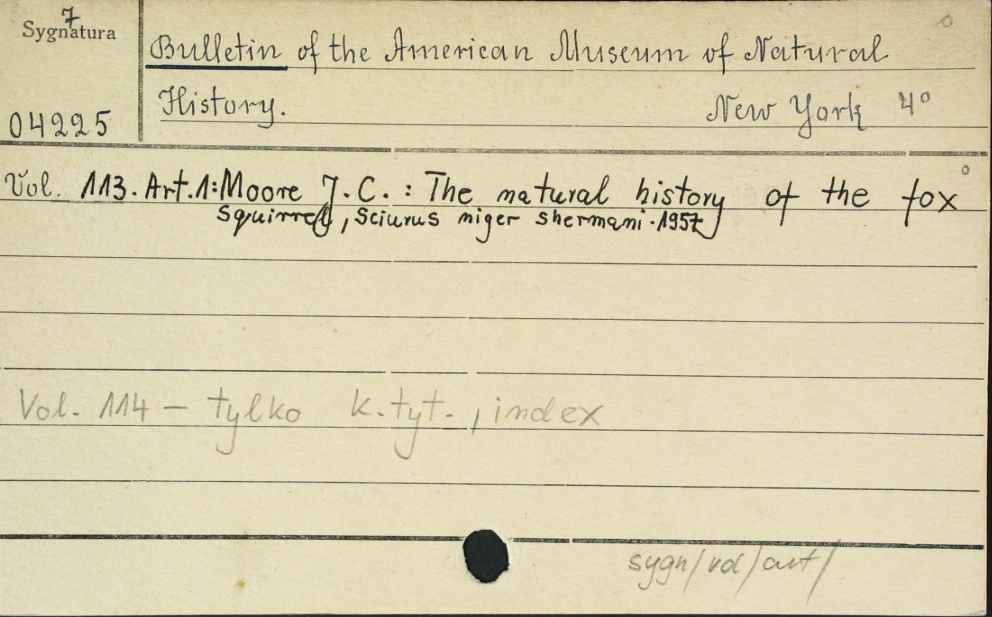 7
Sygnatura
Bulletin of the American Museum of Natural
History. New York 4°
04225
Vol. 113. Art.1: Moore J.C. : The natural history of the fox
squirrel, Sciurus niger shermani. 1957
Vol. 114 – tylko k.tyt., index
sygn/vol/art/